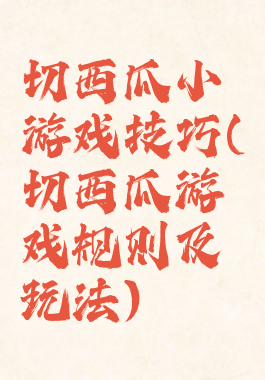 切西瓜小
游戏技巧(
切西瓜游
戏规则及
玩法)